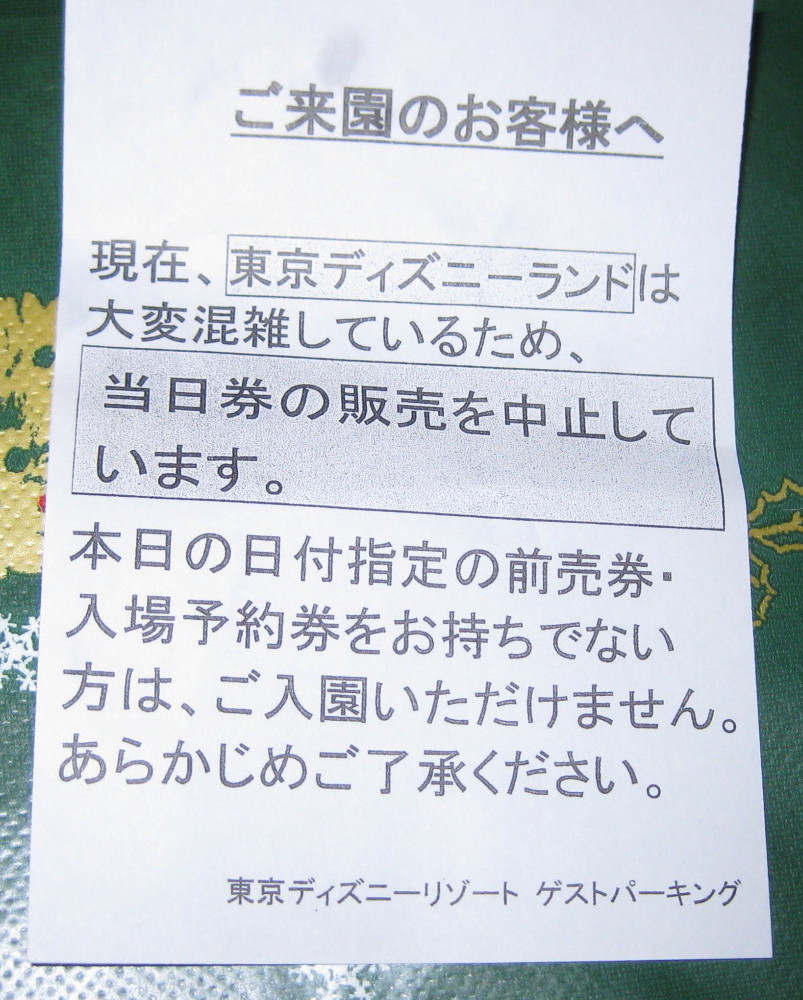 ご来園のお客様へ
現在、東京ディズニーランドは
大変混雑しているため、
当日券の販売を中止して
います。
本日の日付指定の前売券・
入場予約券をお持ちでない
方は、ご入園いただけません。
あらかじめご了承ください。
東京ディズニーリゾート ゲストパーキング